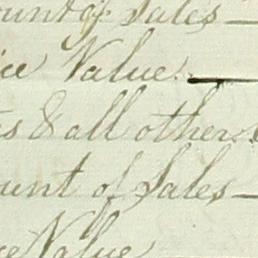 ount of Sales —
ice Value. —
ts & all other
ount of Sales —
ce Value